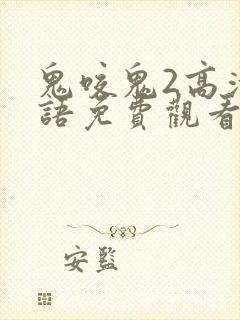 鬼咬鬼2高清
語免費觀看
安監